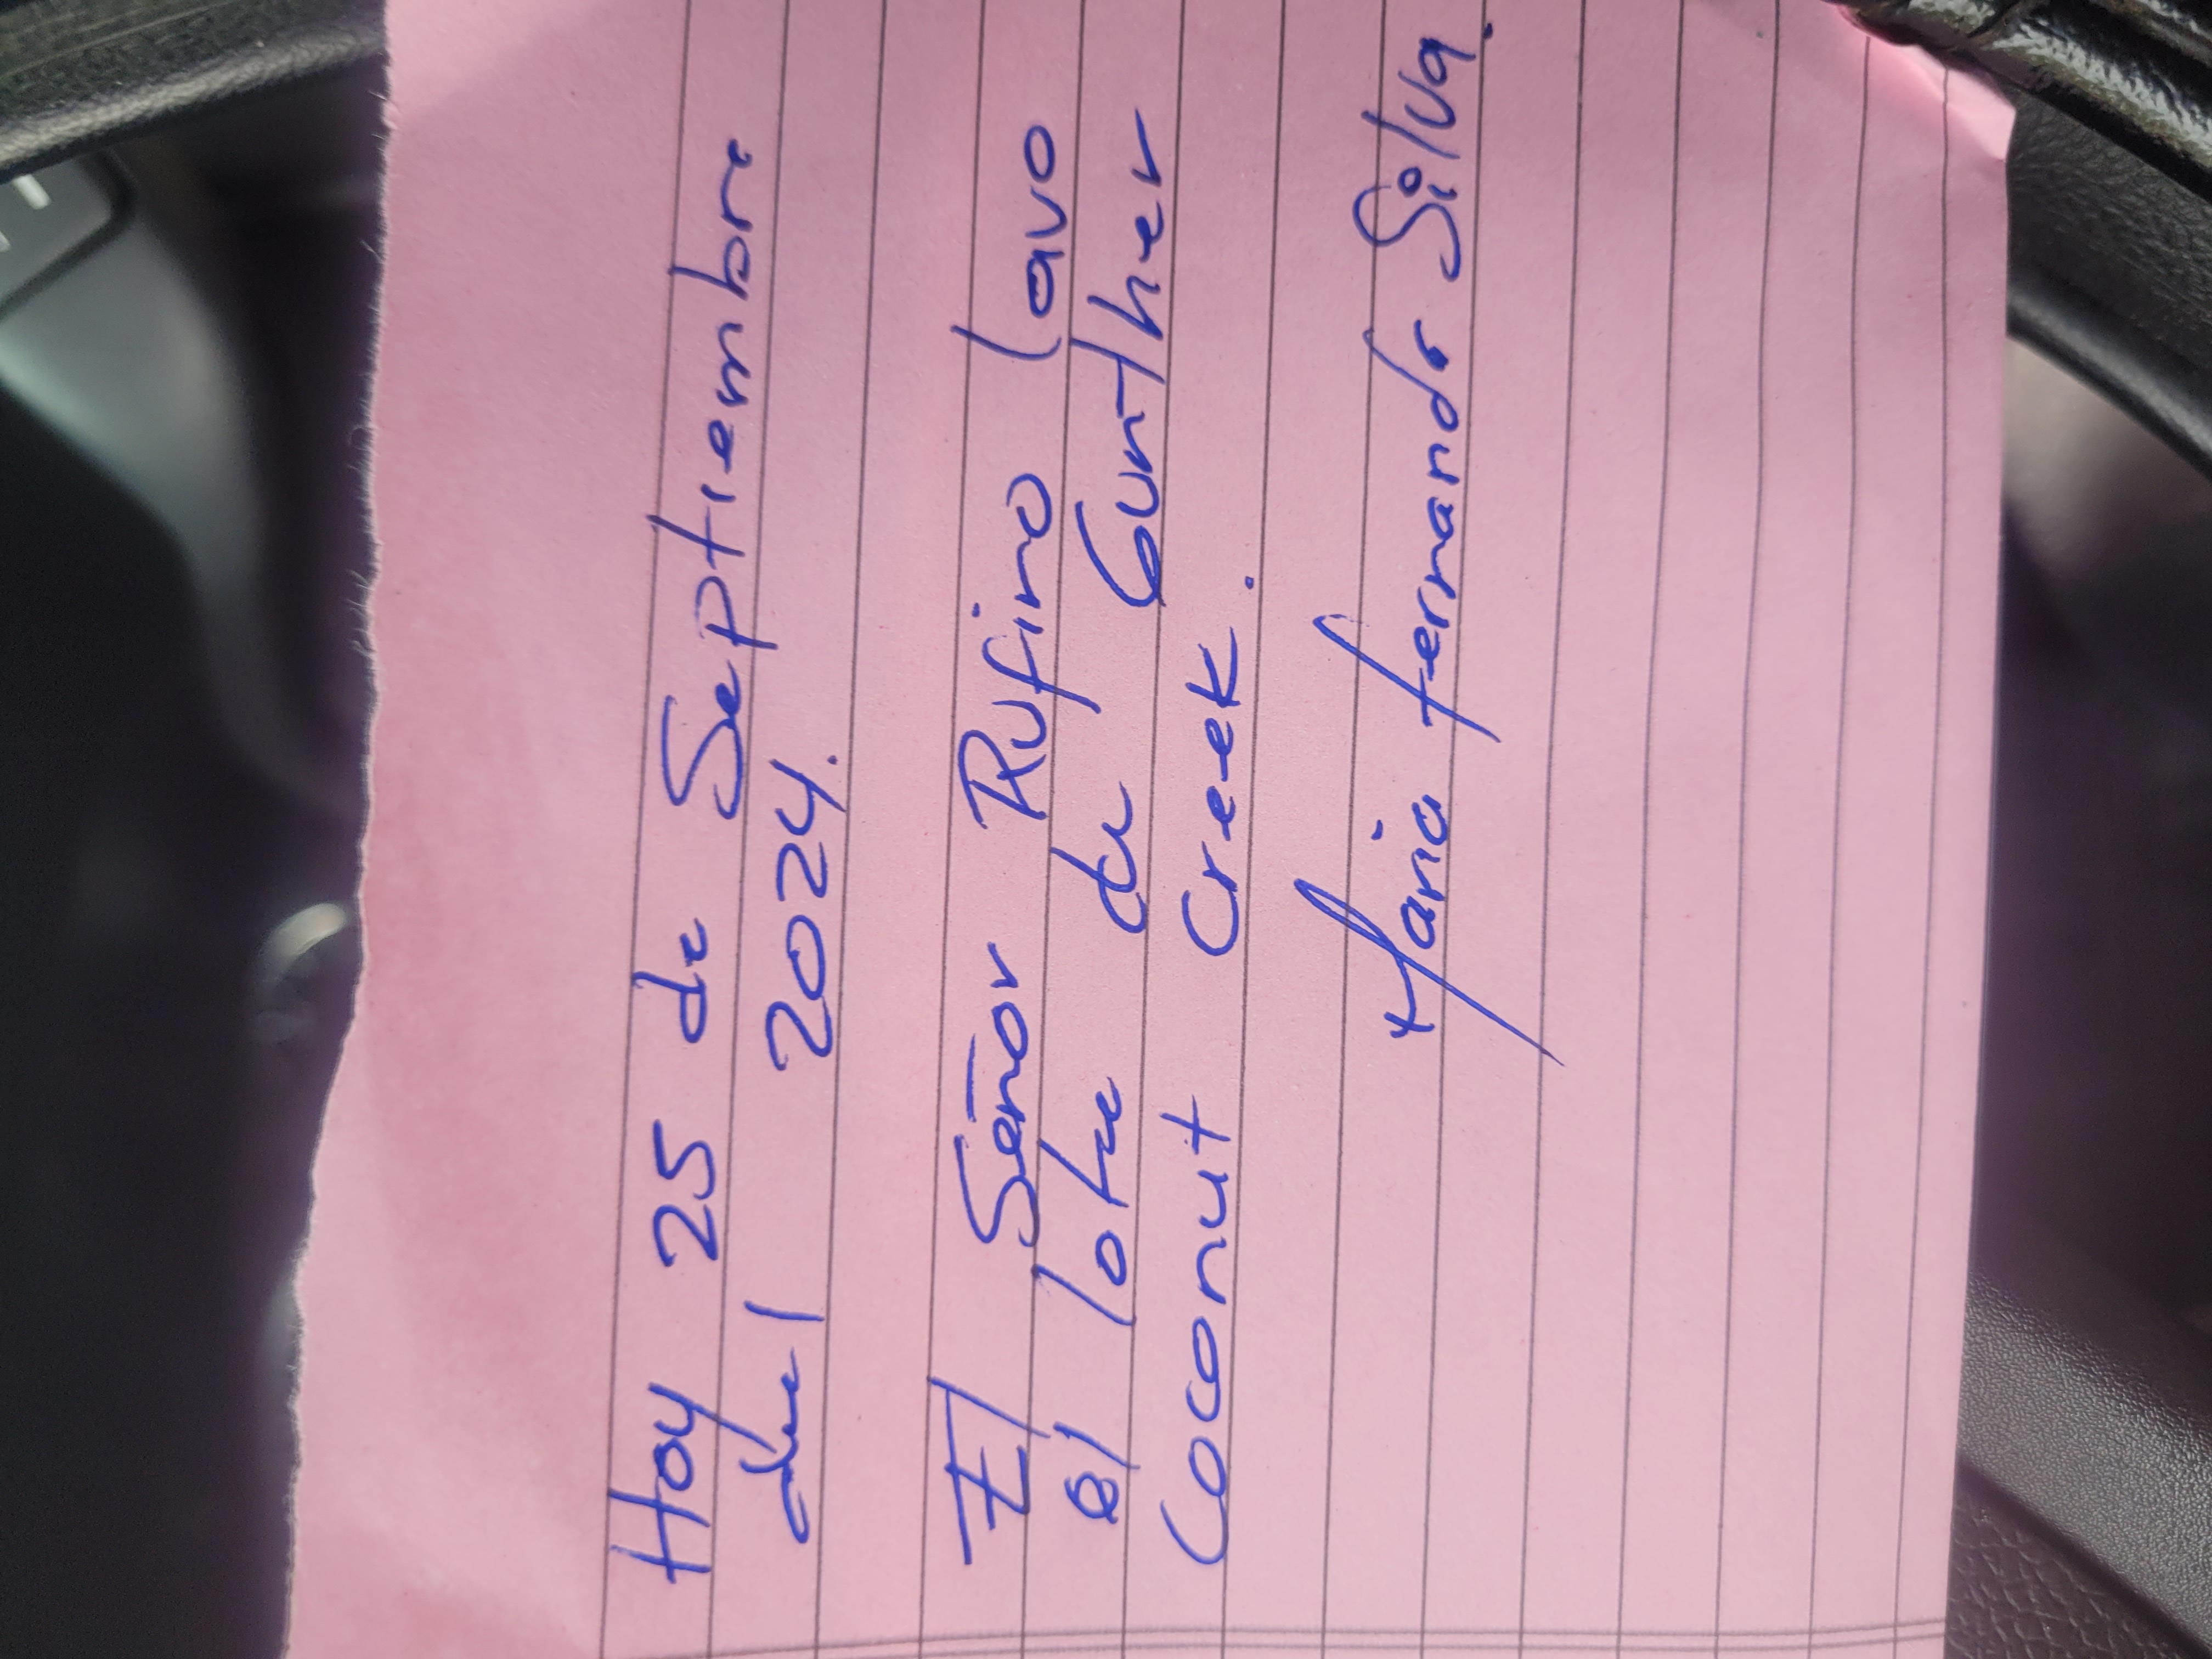 Hoy 25 de Septiembre
del 2024.
El Señor Rufino lavo
el lote de Gunther
Coconut Creek.
Maria fernanda Silva.